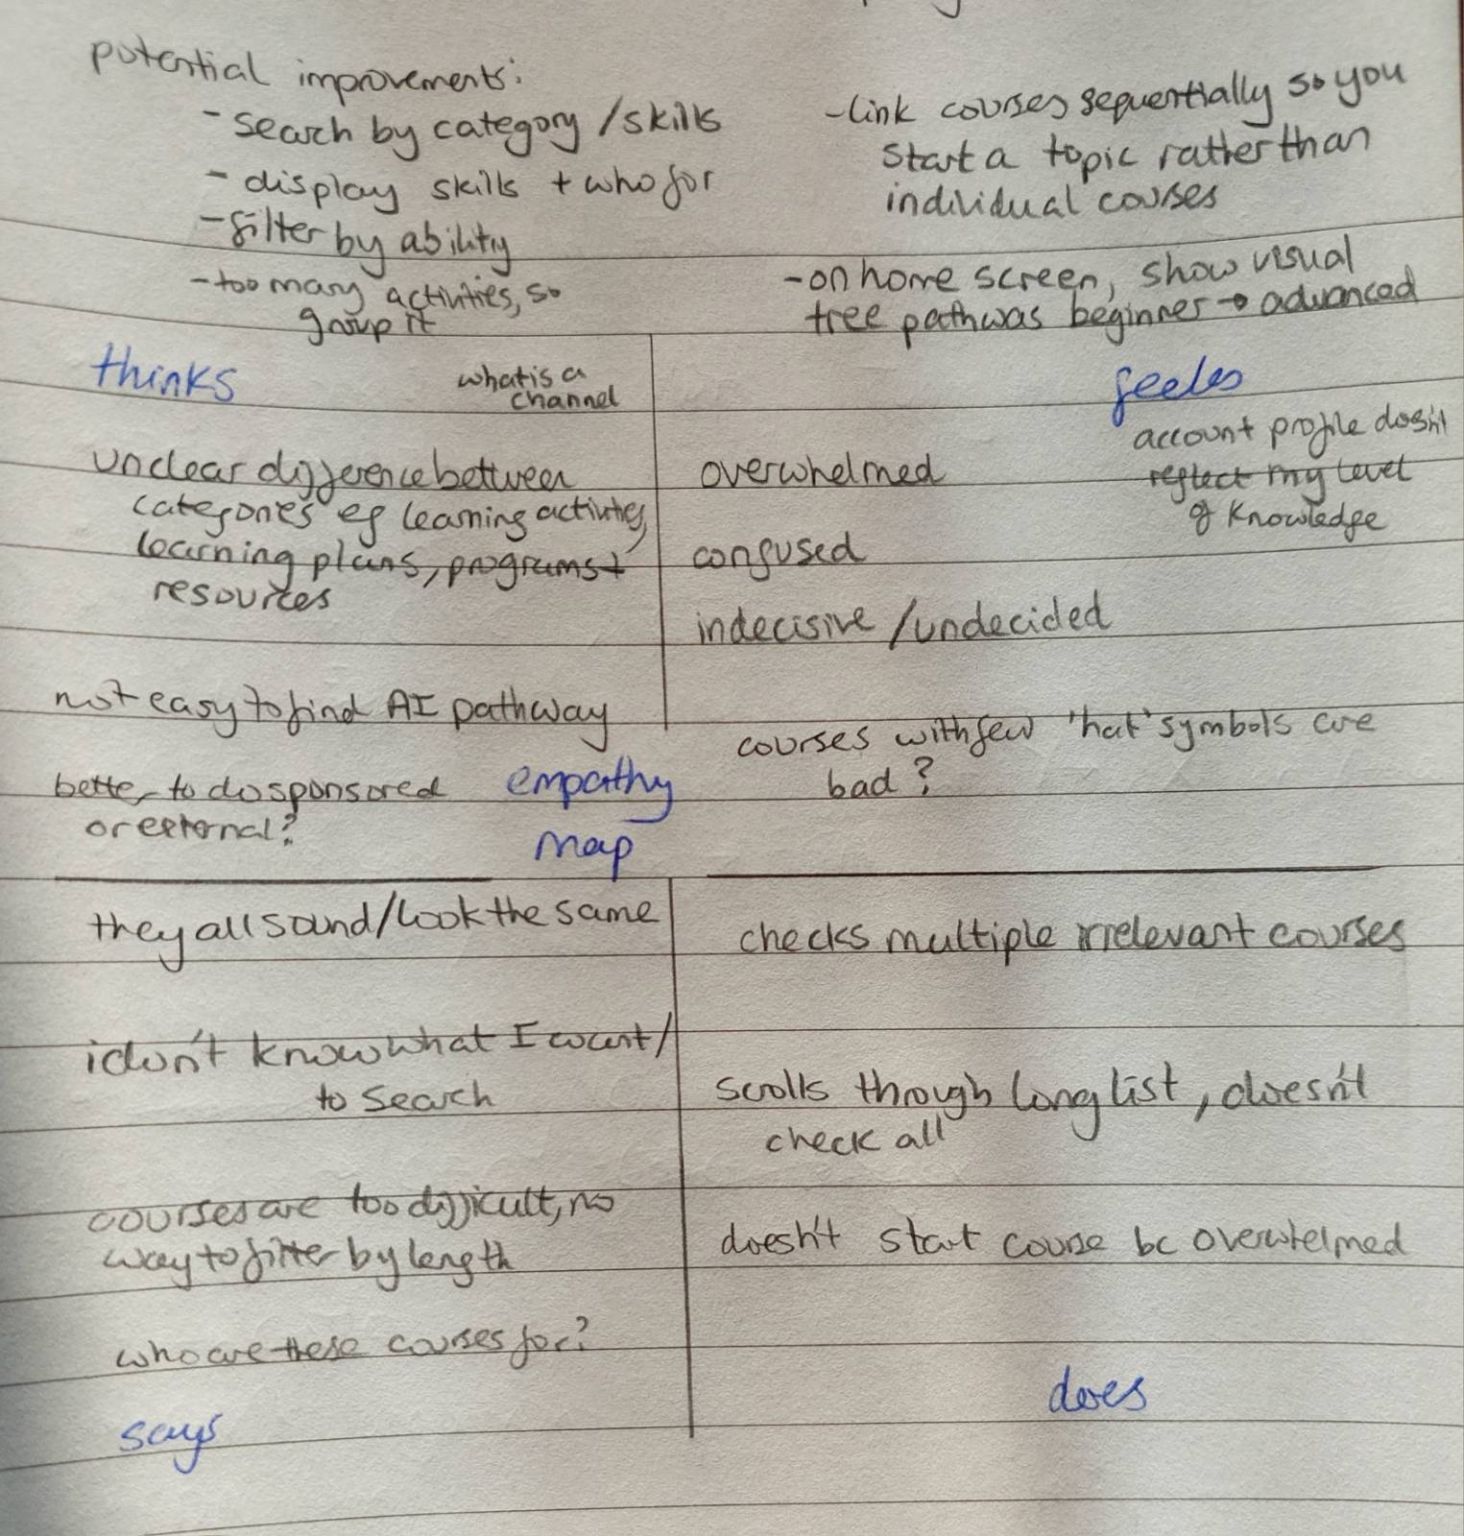 potential improvements:
- search by category / skills
- display skills + who for
- filter by ability
- too many activities, so
group it
- link courses sequentially so you
start a topic rather than
individual courses
- on home screen, show visual
tree pathwas beginner → advanced
thinks
what is a
channel
unclear difference between
categories eg learning activities,
learning plans, programs +
resources
not easy to find AI pathway
better to do sponsored
or external?
feels
account profile doesn't
reflect my level
of knowledge
overwhelmed
confused
indecisive / undecided
courses with few 'hat' symbols are
bad?
empathy
map
they all sound/look the same
i don't know what I want/
to search
courses are too difficult, no
way to filter by length
who are these courses for?
says
checks multiple irrelevant courses
scrolls through long list, doesn't
check all
doesn't start course bc overwhelmed
does